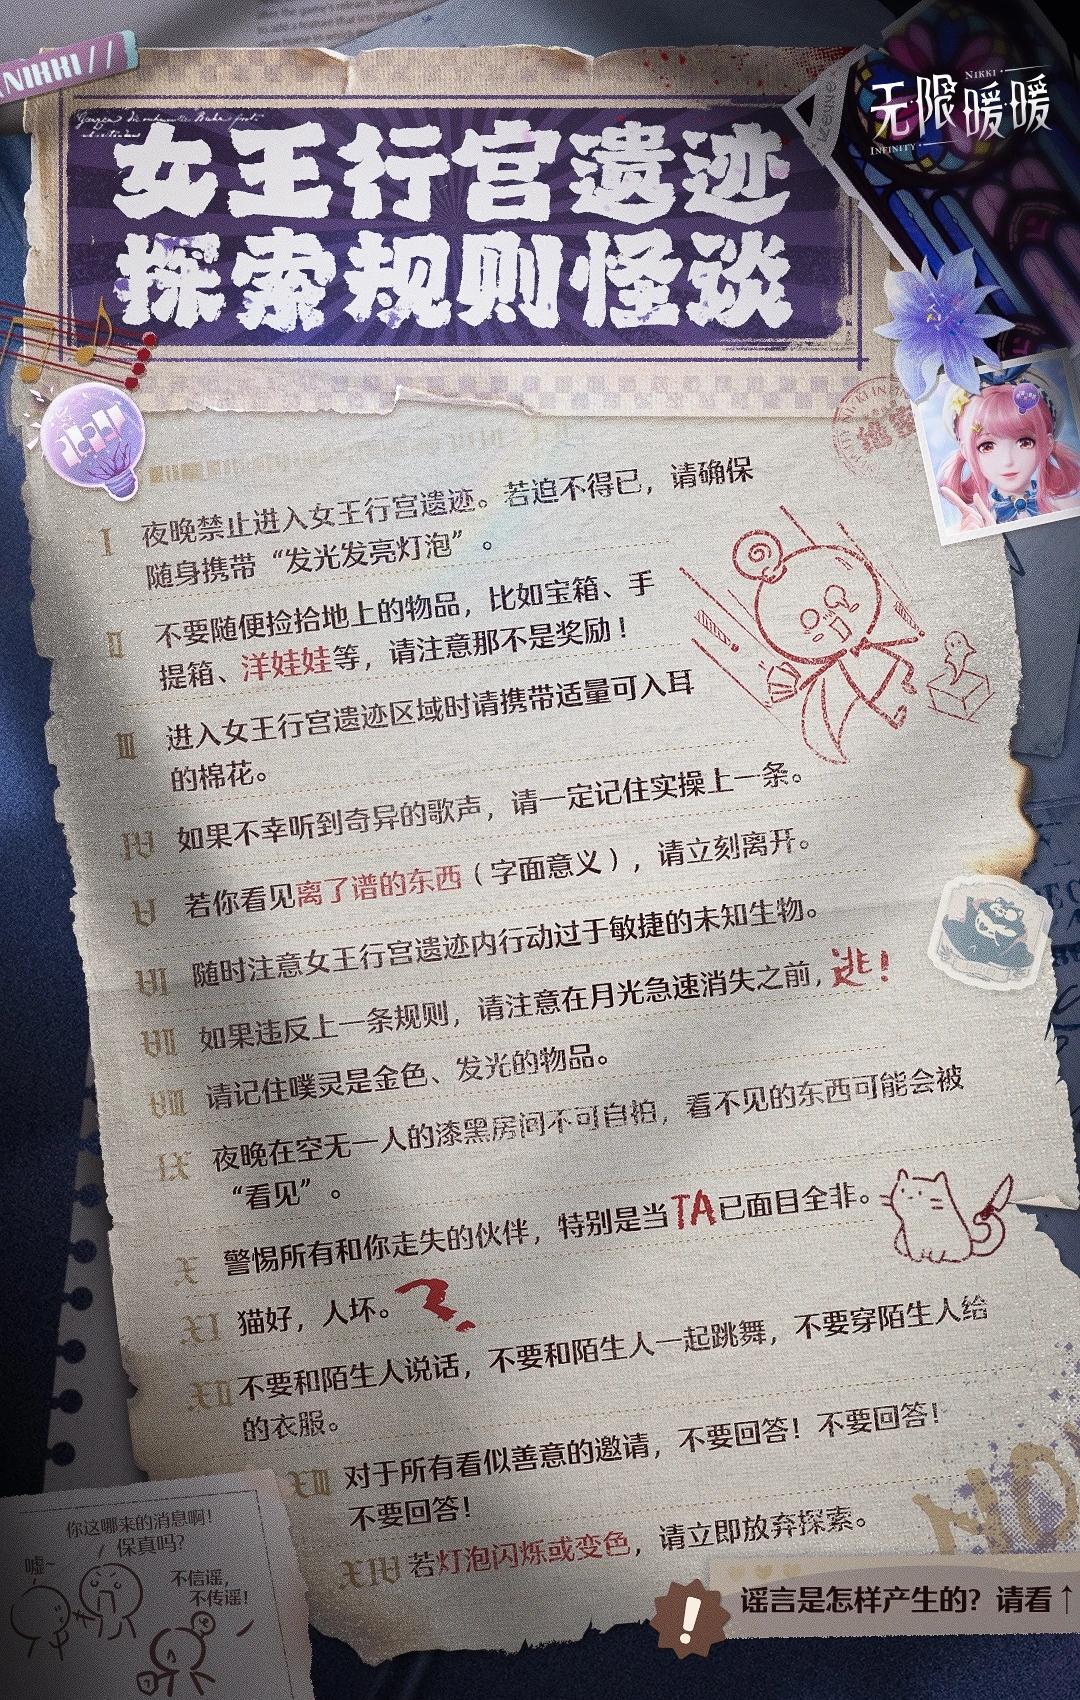 NIKKI//
无限暖暖
NIKKI
INFINITY
女王行宫遗迹
探索规则怪谈
I 夜晚禁止进入女王行宫遗迹。若迫不得已，请确保
随身携带“发光发亮灯泡”。
II 不要随便捡拾地上的物品，比如宝箱、手
提箱、洋娃娃等，请注意那不是奖励！
III 进入女王行宫遗迹区域时请携带适量可入耳
的棉花。
IV 如果不幸听到奇异的歌声，请一定记住实操上一条。
V 若你看见离了谱的东西（字面意义），请立刻离开。
VI 随时注意女王行宫遗迹内行动过于敏捷的未知生物。
VII 如果违反上一条规则，请注意在月光急速消失之前，逃！
VIII 请记住噗灵是金色、发光的物品。
IX 夜晚在空无一人的漆黑房间不可自拍，看不见的东西可能会被
“看见”。
X 警惕所有和你走失的伙伴，特别是当TA已面目全非。
XI 猫好，人坏。?
XII 不要和陌生人说话，不要和陌生人一起跳舞，不要穿陌生人给
的衣服。
XIII 对于所有看似善意的邀请，不要回答！不要回答！
不要回答！
XIV 若灯泡闪烁或变色，请立即放弃探索。
NO
你这哪来的消息啊！
保真吗？
嘘~
不信谣，
不传谣！
! 谣言是怎样产生的？请看↑